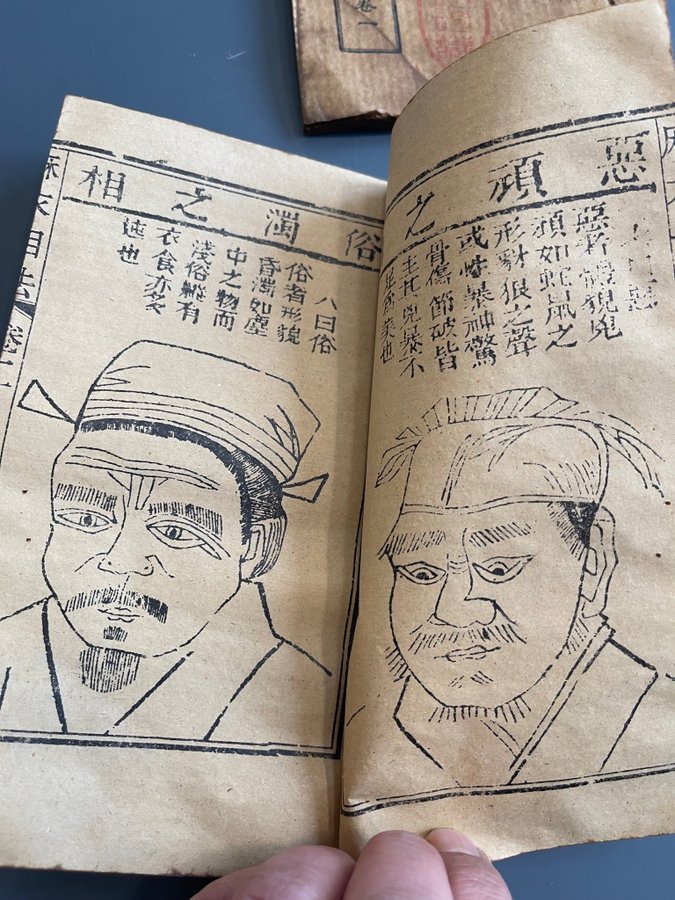 惡頑之
惡
惡者體貌兇
頑如蛇鼠之
形豺狼之聲
或性暴神驚
骨傷節破皆
主其兇暴不
俗濁之相
八曰俗
俗者形貌
昏濁如塵
中之物而
淺俗縱有
衣食亦多
迍也
麻衣相法
卷一